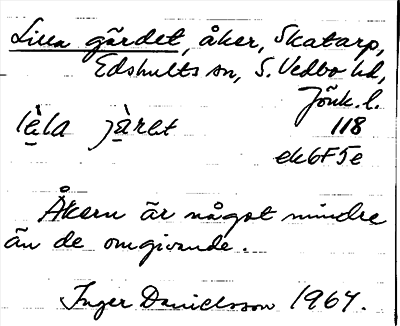 Lilla gärdet, åker, Skatarp,
Edshults sn, S. Vedbo hd,
Jönk. l.
118
ek6F5e
Åkern är något mindre
än de omgivande.
Inger Danielsson 1967.